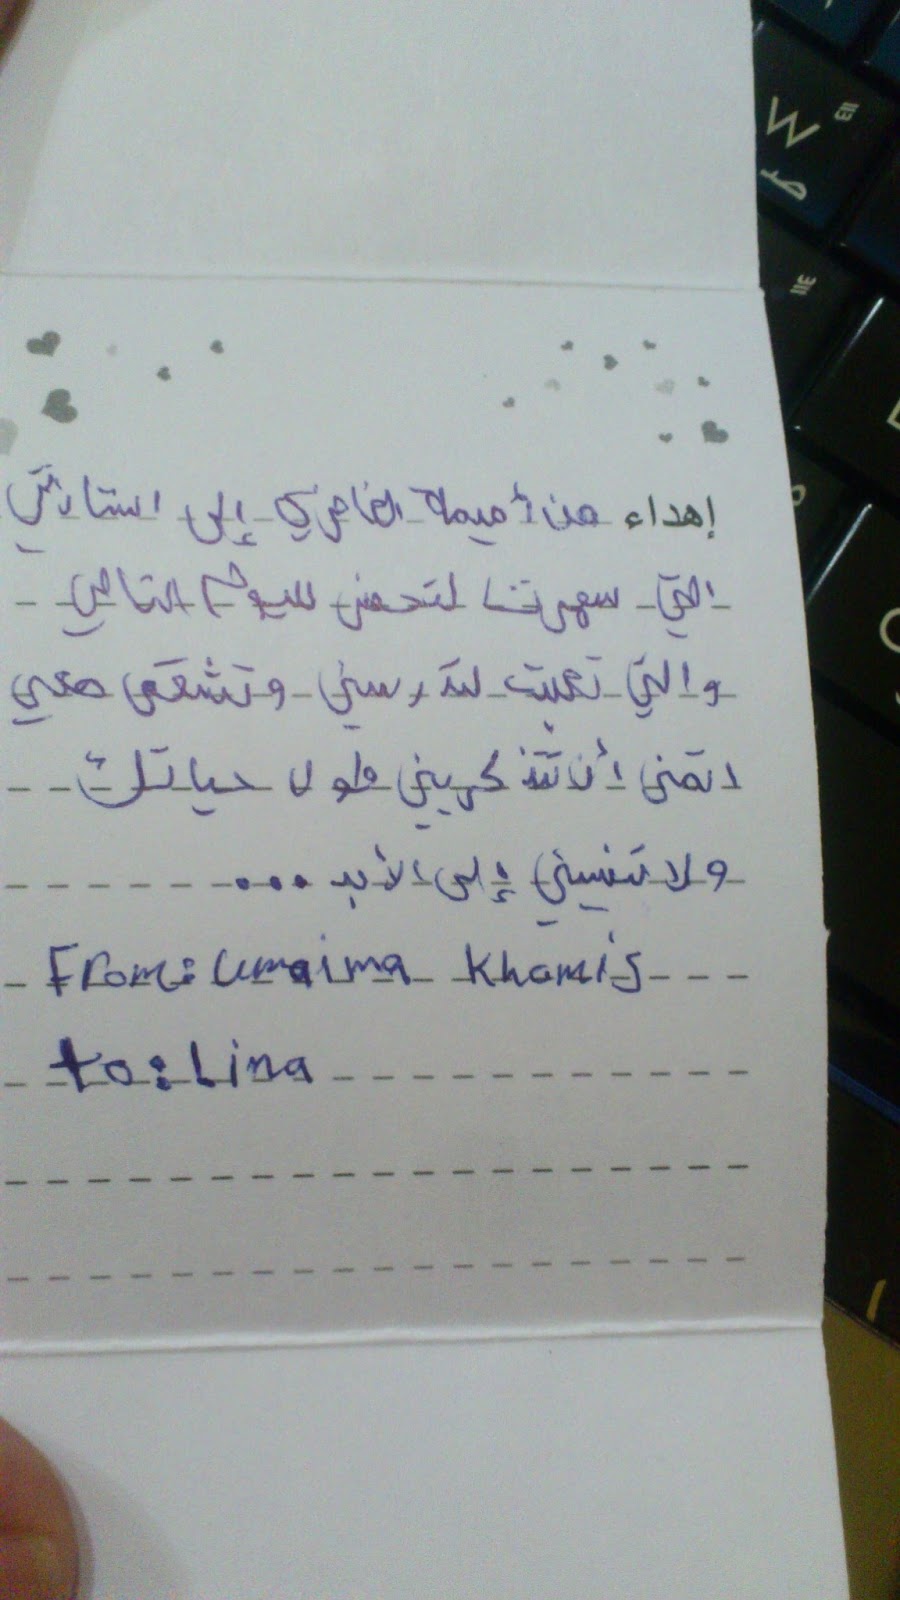 إهداء من أميمة الغامري إلى استاذتي
التي سهرت لتحضر لليوم التالي
والتي تعبت لتدرسني وتشقى معي
اتمنى أن تتذكريني طول حياتك
ولا تنسيني إلى الأبد ...
From: Umaima Khamis
to: Lina
W
ص